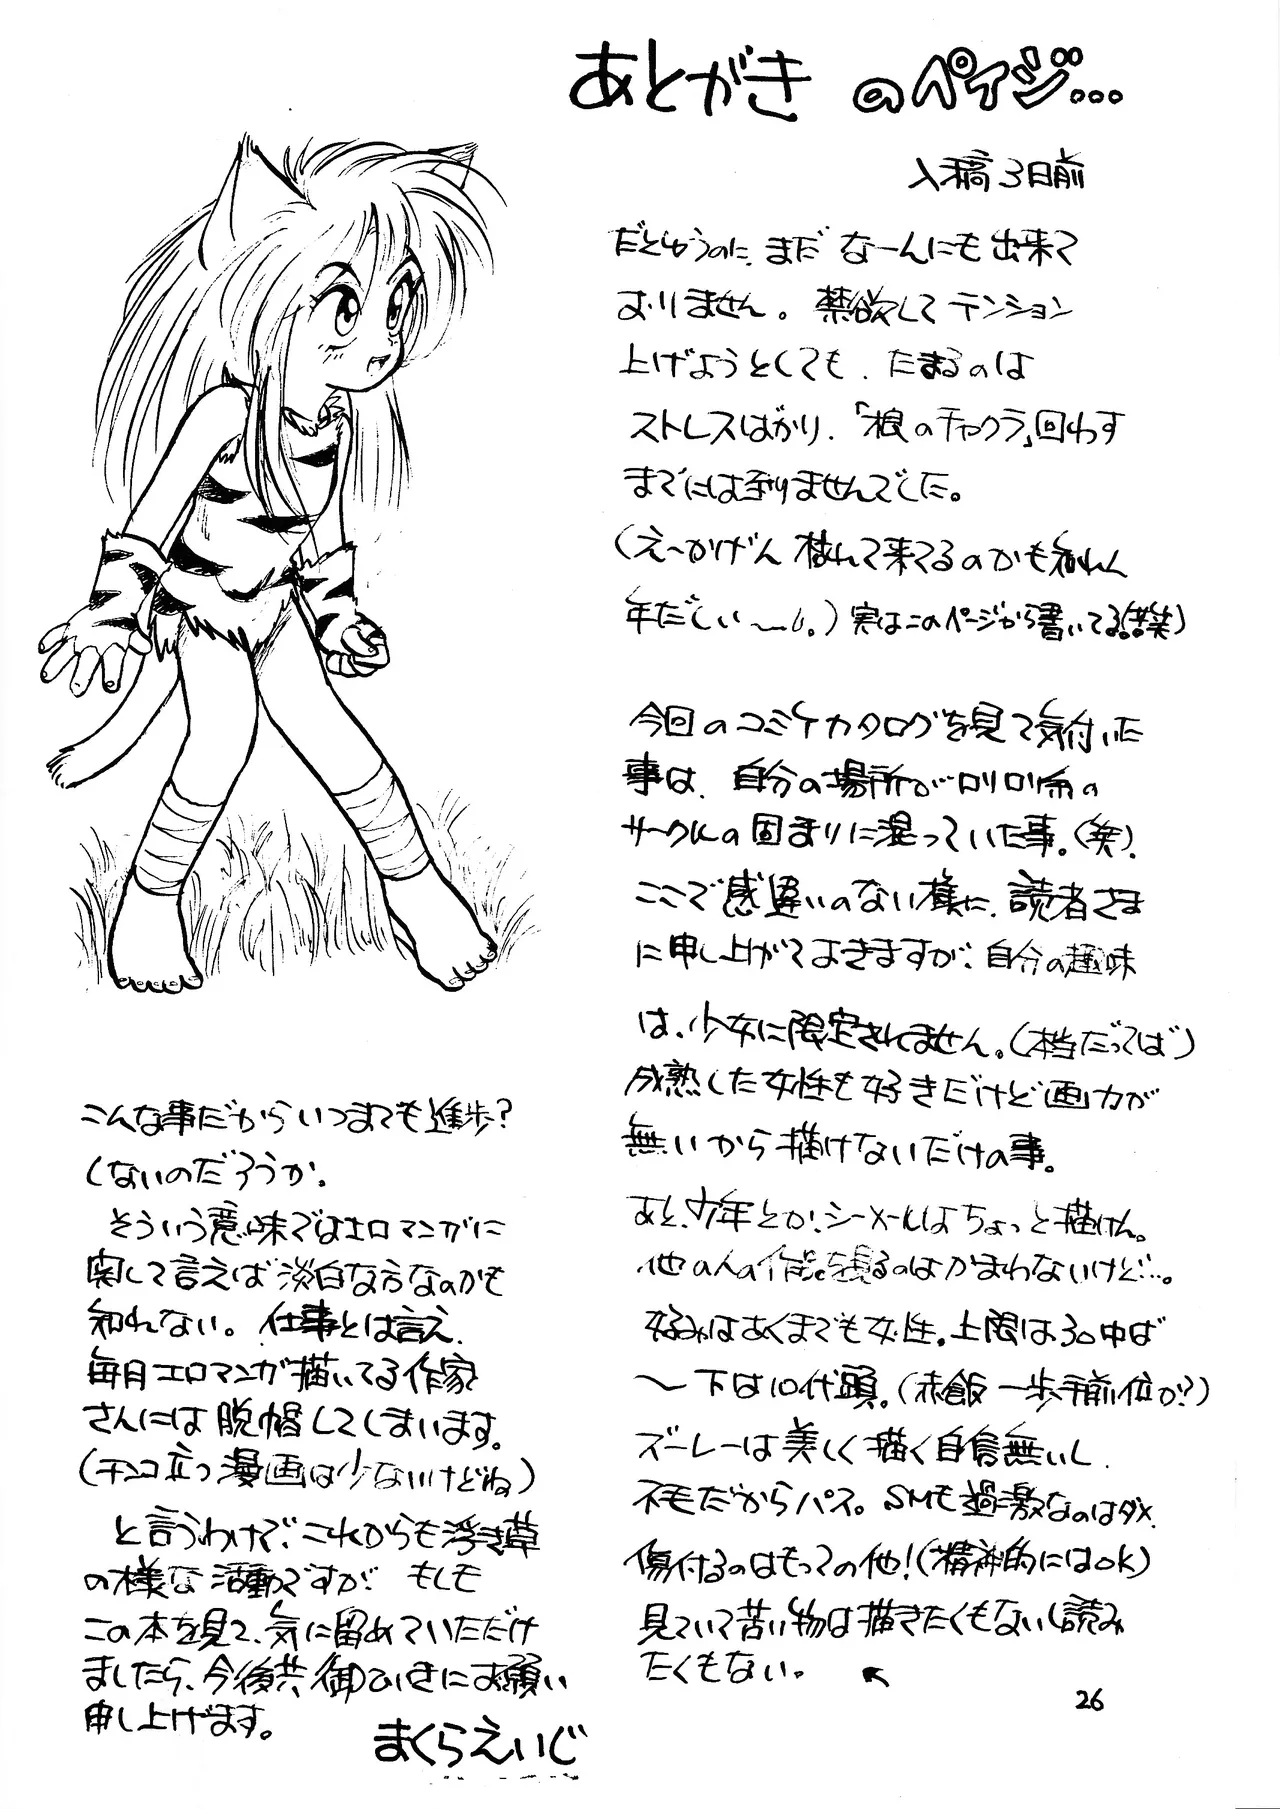 あとがき のペイジ…
入稿3日前
だとゆうのに、まだ なーんにも出来て
おりません。禁欲してテンション
上げようとしても、たまるのは
ストレスばかり、「根のチャクラ」回わす
までには到りませんでした。
(えーかげん 枯れて来てるのかも知れん
年だしぃ〜。) 実はこのページから書いてる(苦笑)
今回のコミケカタログを見て気付いた
事は、自分の場所がロリロリ系の
サークルの固まりに混っていた事。(笑).
ここで感違いのない様に、読者さま
に申し上がておきますが、自分の趣味
は、少女に限定されてません。(本当だってば)
成熟した女性も好きだけど画力が
無いから描けないだけの事。
あと、少年とか、シーメールはちょっと描けん。
他の人の作品を観るのはかまわないけど…。
好みはあくまでも女性。上限は30中ば
〜下は10代頭。(赤飯 一歩手前位か?)
ズーレーは美しく描く自信無いし、
不毛だからパス。SMも過激なのはダメ、
傷付るのはもっての他!(精神的にはOK)
見ていて苦い物は描きたくもないし読み
たくもない。
こんな事だからいつまでも進歩?
しないのだろうか。
そういう意味ではエロマンガに
関して言えば淡白な方なのかも
知れない。仕事とは言え、
毎月エロマンガ描いてる作家
さんには脱帽してしまいます。
(チンコ立つ漫画は少ないけどね)
と言うわけで、これからも浮き草
の様な活動ですが、もしも
この本を見て、気に留めていただけ
ましたら、今後共、御ひいきにお願い
申し上げます。
まくらえいじ
26